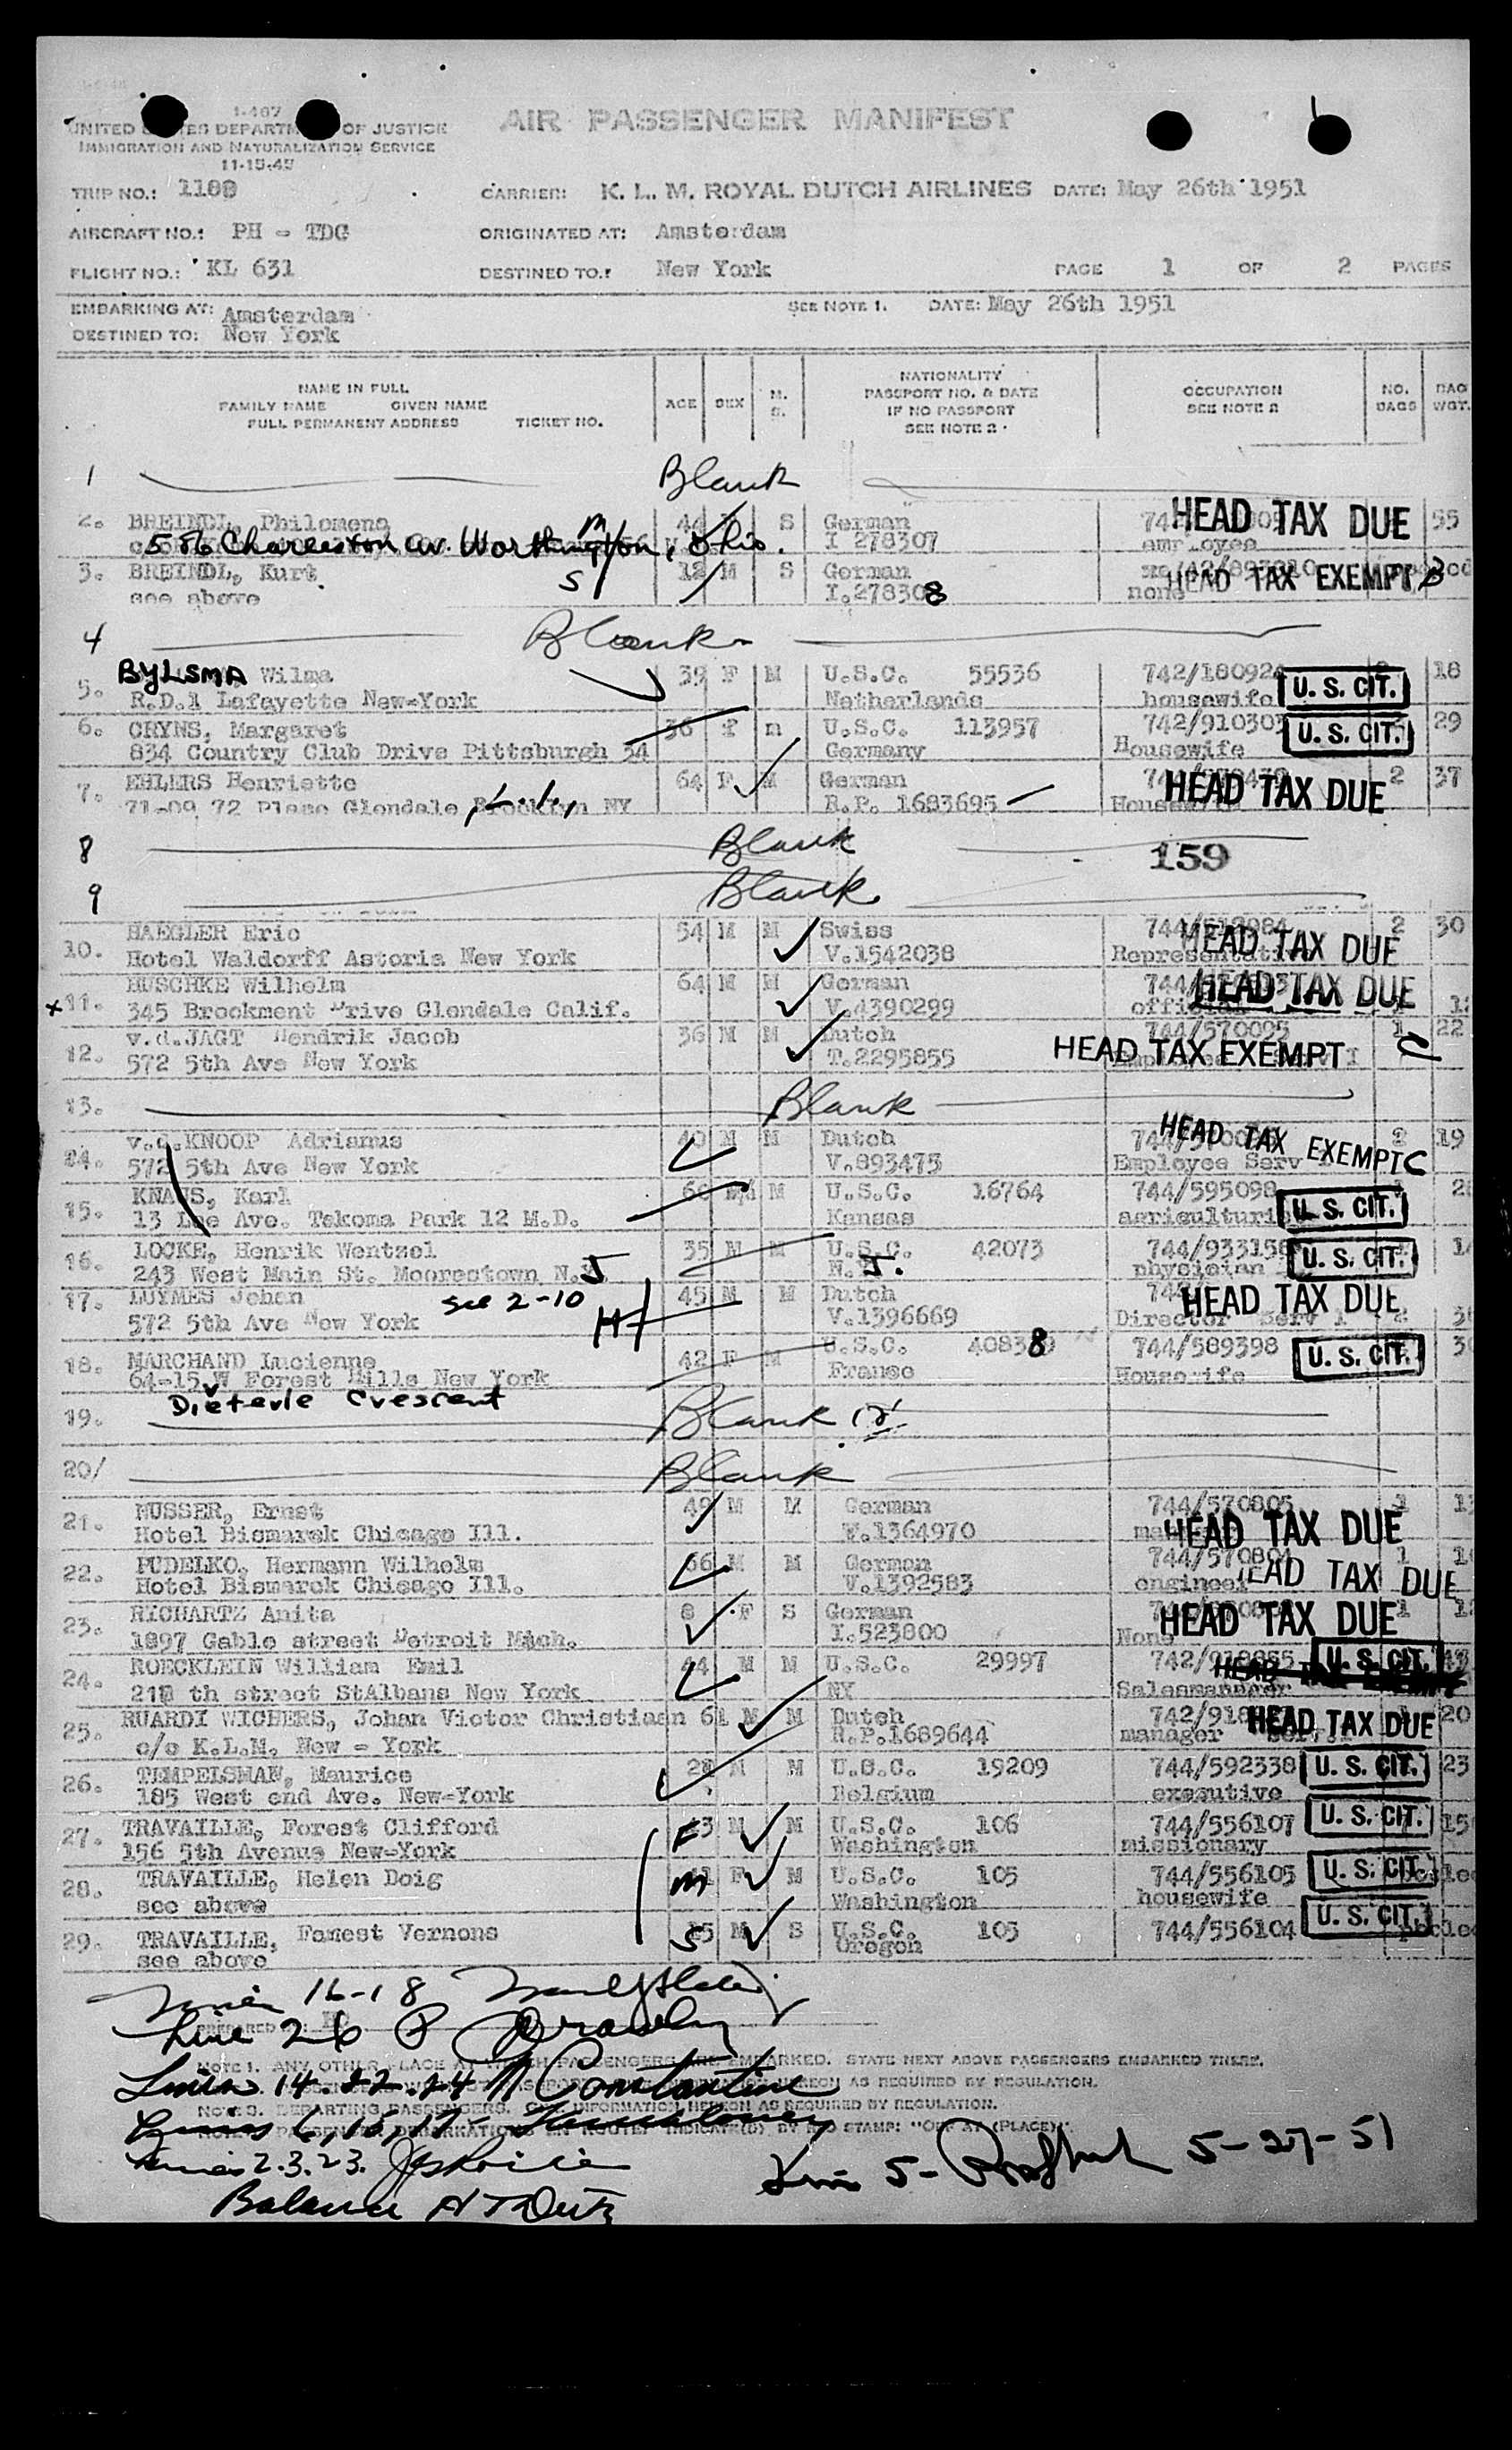 I-467
UNITED STATES DEPARTMENT OF JUSTICE
IMMIGRATION AND NATURALIZATION SERVICE
11-15-45
AIR PASSENGER MANIFEST
TRIP NO.: 1188 CARRIER: K. L. M. ROYAL DUTCH AIRLINES DATE: May 26th 1951
AIRCRAFT NO.: PH - TDG ORIGINATED AT: Amsterdam
FLIGHT NO.: KL 631 DESTINED TO.: New York PAGE 1 OF 2 PAGES
EMBARKING AT: Amsterdam SEE NOTE 1. DATE: May 26th 1951
DESTINED TO: New York
NAME IN FULL
FAMILY NAME GIVEN NAME
FULL PERMANENT ADDRESS TICKET NO.
AGE SEX M. S.
NATIONALITY
PASSPORT NO. & DATE
IF NO PASSPORT
SEE NOTE 2
OCCUPATION
SEE NOTE 2
NO. BAGS BAG WGT.
1 Blank
2. BREINDL, Philomena 44 S German HEAD TAX DUE 55
586 Charleston av. Worthington, Ohio. I 278307 employee
3. BREINDL, Kurt S 12 M S German HEAD TAX EXEMPT B
see above I.278308 none
4 Blank
5. BYLSMA, Wilma 39 F M U.S.C. 55536 742/180924 U. S. CIT. 18
R.D.1 Lafayette New-York Netherlands housewife
6. CHYNS, Margaret 36 f m U.S.C. 113957 742/910303 U. S. CIT. 29
834 Country Club Drive Pittsburgh 34 Germany Housewife
7. EHLERS Henriette 64 F M German HEAD TAX DUE 2 37
71-09 72 Place Glendale, L.I. NY R.P. 1683695 Housewife
8 Blank 159
9 Blank
10. HAEGLER Eric 54 M M Swiss 744/512984 2 30
Hotel Waldorff Astoria New York V.1542038 Representative HEAD TAX DUE
x 11. HUSCHKE Wilhelm 64 M M German HEAD TAX DUE
345 Brockment Drive Glendale Calif. V.4390299 official
12. v.d.JAGT Hendrik Jacob 36 M M Dutch 744/570095 1 22
572 5th Ave New York T.2295855 HEAD TAX EXEMPT C
13. Blank
14. v.d.KNOOP Adrianus 40 M M Dutch HEAD TAX EXEMPT C 2 19
572 5th Ave New York V.893473 Employee Serv
15. KNAUS, Karl 60 M M U.S.C. 16764 744/595098 U. S. CIT.
13 Lee Ave. Takoma Park 12 M.D. Kansas agriculturist
16. LOCKE, Henrik Wentzel 35 M M U.S.C. 42073 744/933158 U. S. CIT.
243 West Main St. Moorestown N.J. N.J. physician
17. LUYMES Johan see 2-10 H 45 M M Dutch HEAD TAX DUE
572 5th Ave New York V.1396669 Director Serv I 2
18. MARCHAND Lucienne 42 F M U.S.C. 408388 744/589398 U. S. CIT.
64-15 W Forest Hills New York France Housewife
Dieterle Crescent
19. Blank
20/ Blank
21. MUSSER, Ernst 49 M M German 744/570805 1
Hotel Bismarck Chicago Ill. V.1364970 HEAD TAX DUE
22. PUDELKO, Hermann Wilhelm 66 M M German 744/570804 1
Hotel Bismarck Chicago Ill. V.1392583 engineer HEAD TAX DUE
23. RICHARTZ Anita 8 F S German HEAD TAX DUE 1
1897 Gable street Detroit Mich. I.523800 None
24. ROECKLEIN William Emil 44 M M U.S.C. 29997 742/918855 U. S. CIT.
218 th street StAlbans New York NY Salesmanager
25. RUARDI WICHERS, Johan Victor Christiaan 61 M M Dutch HEAD TAX DUE 20
c/o K.L.M. New - York R.P.1689644 manager
26. TEMPELSMAN, Maurice 28 M M U.S.C. 19209 744/592338 U. S. CIT. 23
185 West end Ave. New-York Belgium executive
27. TRAVAILLE, Forest Clifford F 43 M M U.S.C. 106 744/556107 U. S. CIT.
156 5th Avenue New-York Washington missionary
28. TRAVAILLE, Helen Doig m 41 F M U.S.C. 105 744/556105 U. S. CIT.
see above Washington housewife
29. TRAVAILLE, Forest Vernons S 15 M S U.S.C. 105 744/556104 U. S. CIT.
see above Oregon
Lines 16-18
Line 26
NOTE 1. ANY OTHER PLACE AT WHICH PASSENGERS ARE EMBARKED. STATE NEXT ABOVE PASSENGERS EMBARKED THERE.
Lines 14. 22. 24 Constantine
NOTE 3. DEPARTING PASSENGERS. GIVE INFORMATION HEREON AS REQUIRED BY REGULATION.
Lines 6, 15, 17-
Lines 2. 3. 23.
Line 5- 5-27-51
Balance